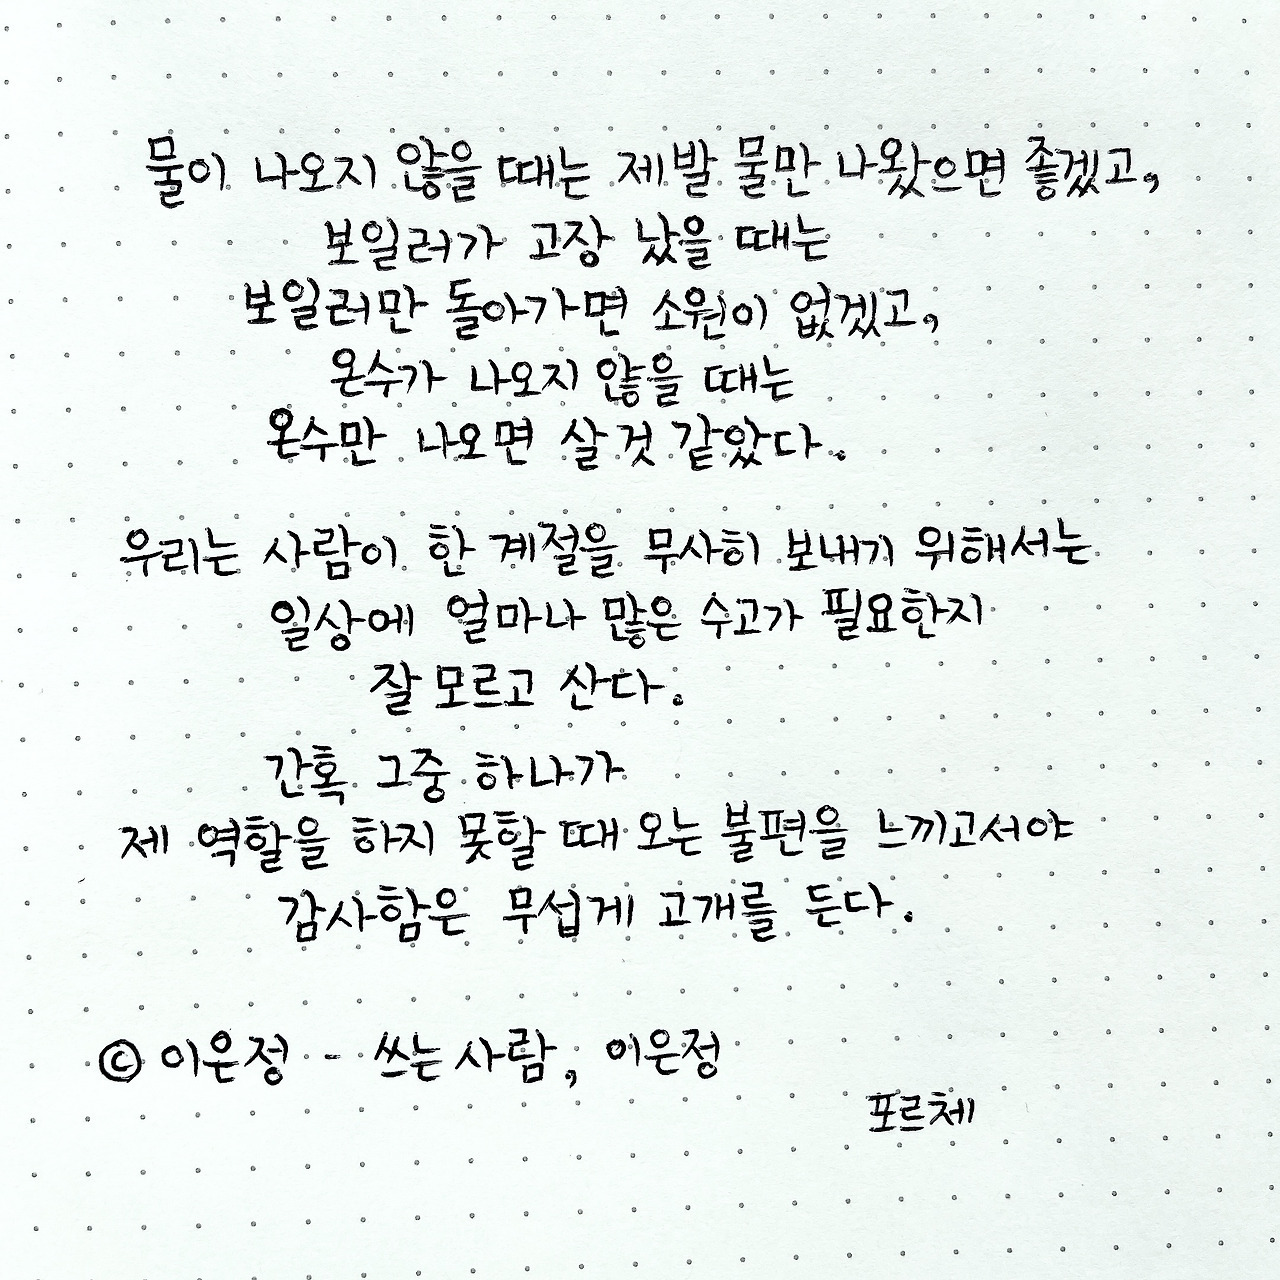 물이 나오지 않을 때는 제발 물만 나왔으면 좋겠고,
보일러가 고장 났을 때는
보일러만 돌아가면 소원이 없겠고,
온수가 나오지 않을 때는
온수만 나오면 살 것 같았다.
우리는 사람이 한 계절을 무사히 보내기 위해서는
일상에 얼마나 많은 수고가 필요한지
잘 모르고 산다.
간혹 그중 하나가
제 역할을 하지 못할 때 오는 불편을 느끼고서야
감사함은 무섭게 고개를 든다.
© 이은정 - 쓰는 사람, 이은정
포르체